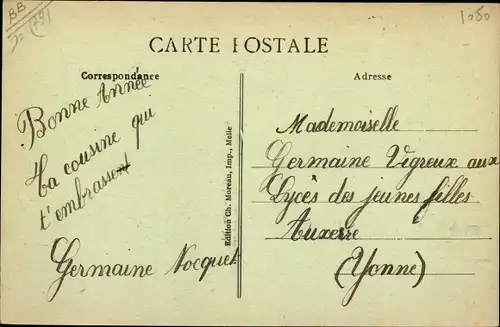 BB
79
1080
CARTE POSTALE
Correspondance
Adresse
Bonne Année
ta cousine qui
t'embrassent
Germaine Nocquet
Edition Ch. Moreau, Imp., Melle
Mademoiselle
Germaine Vigreux aux
Lycès des jeunes filles
Auxerre
(Yonne)